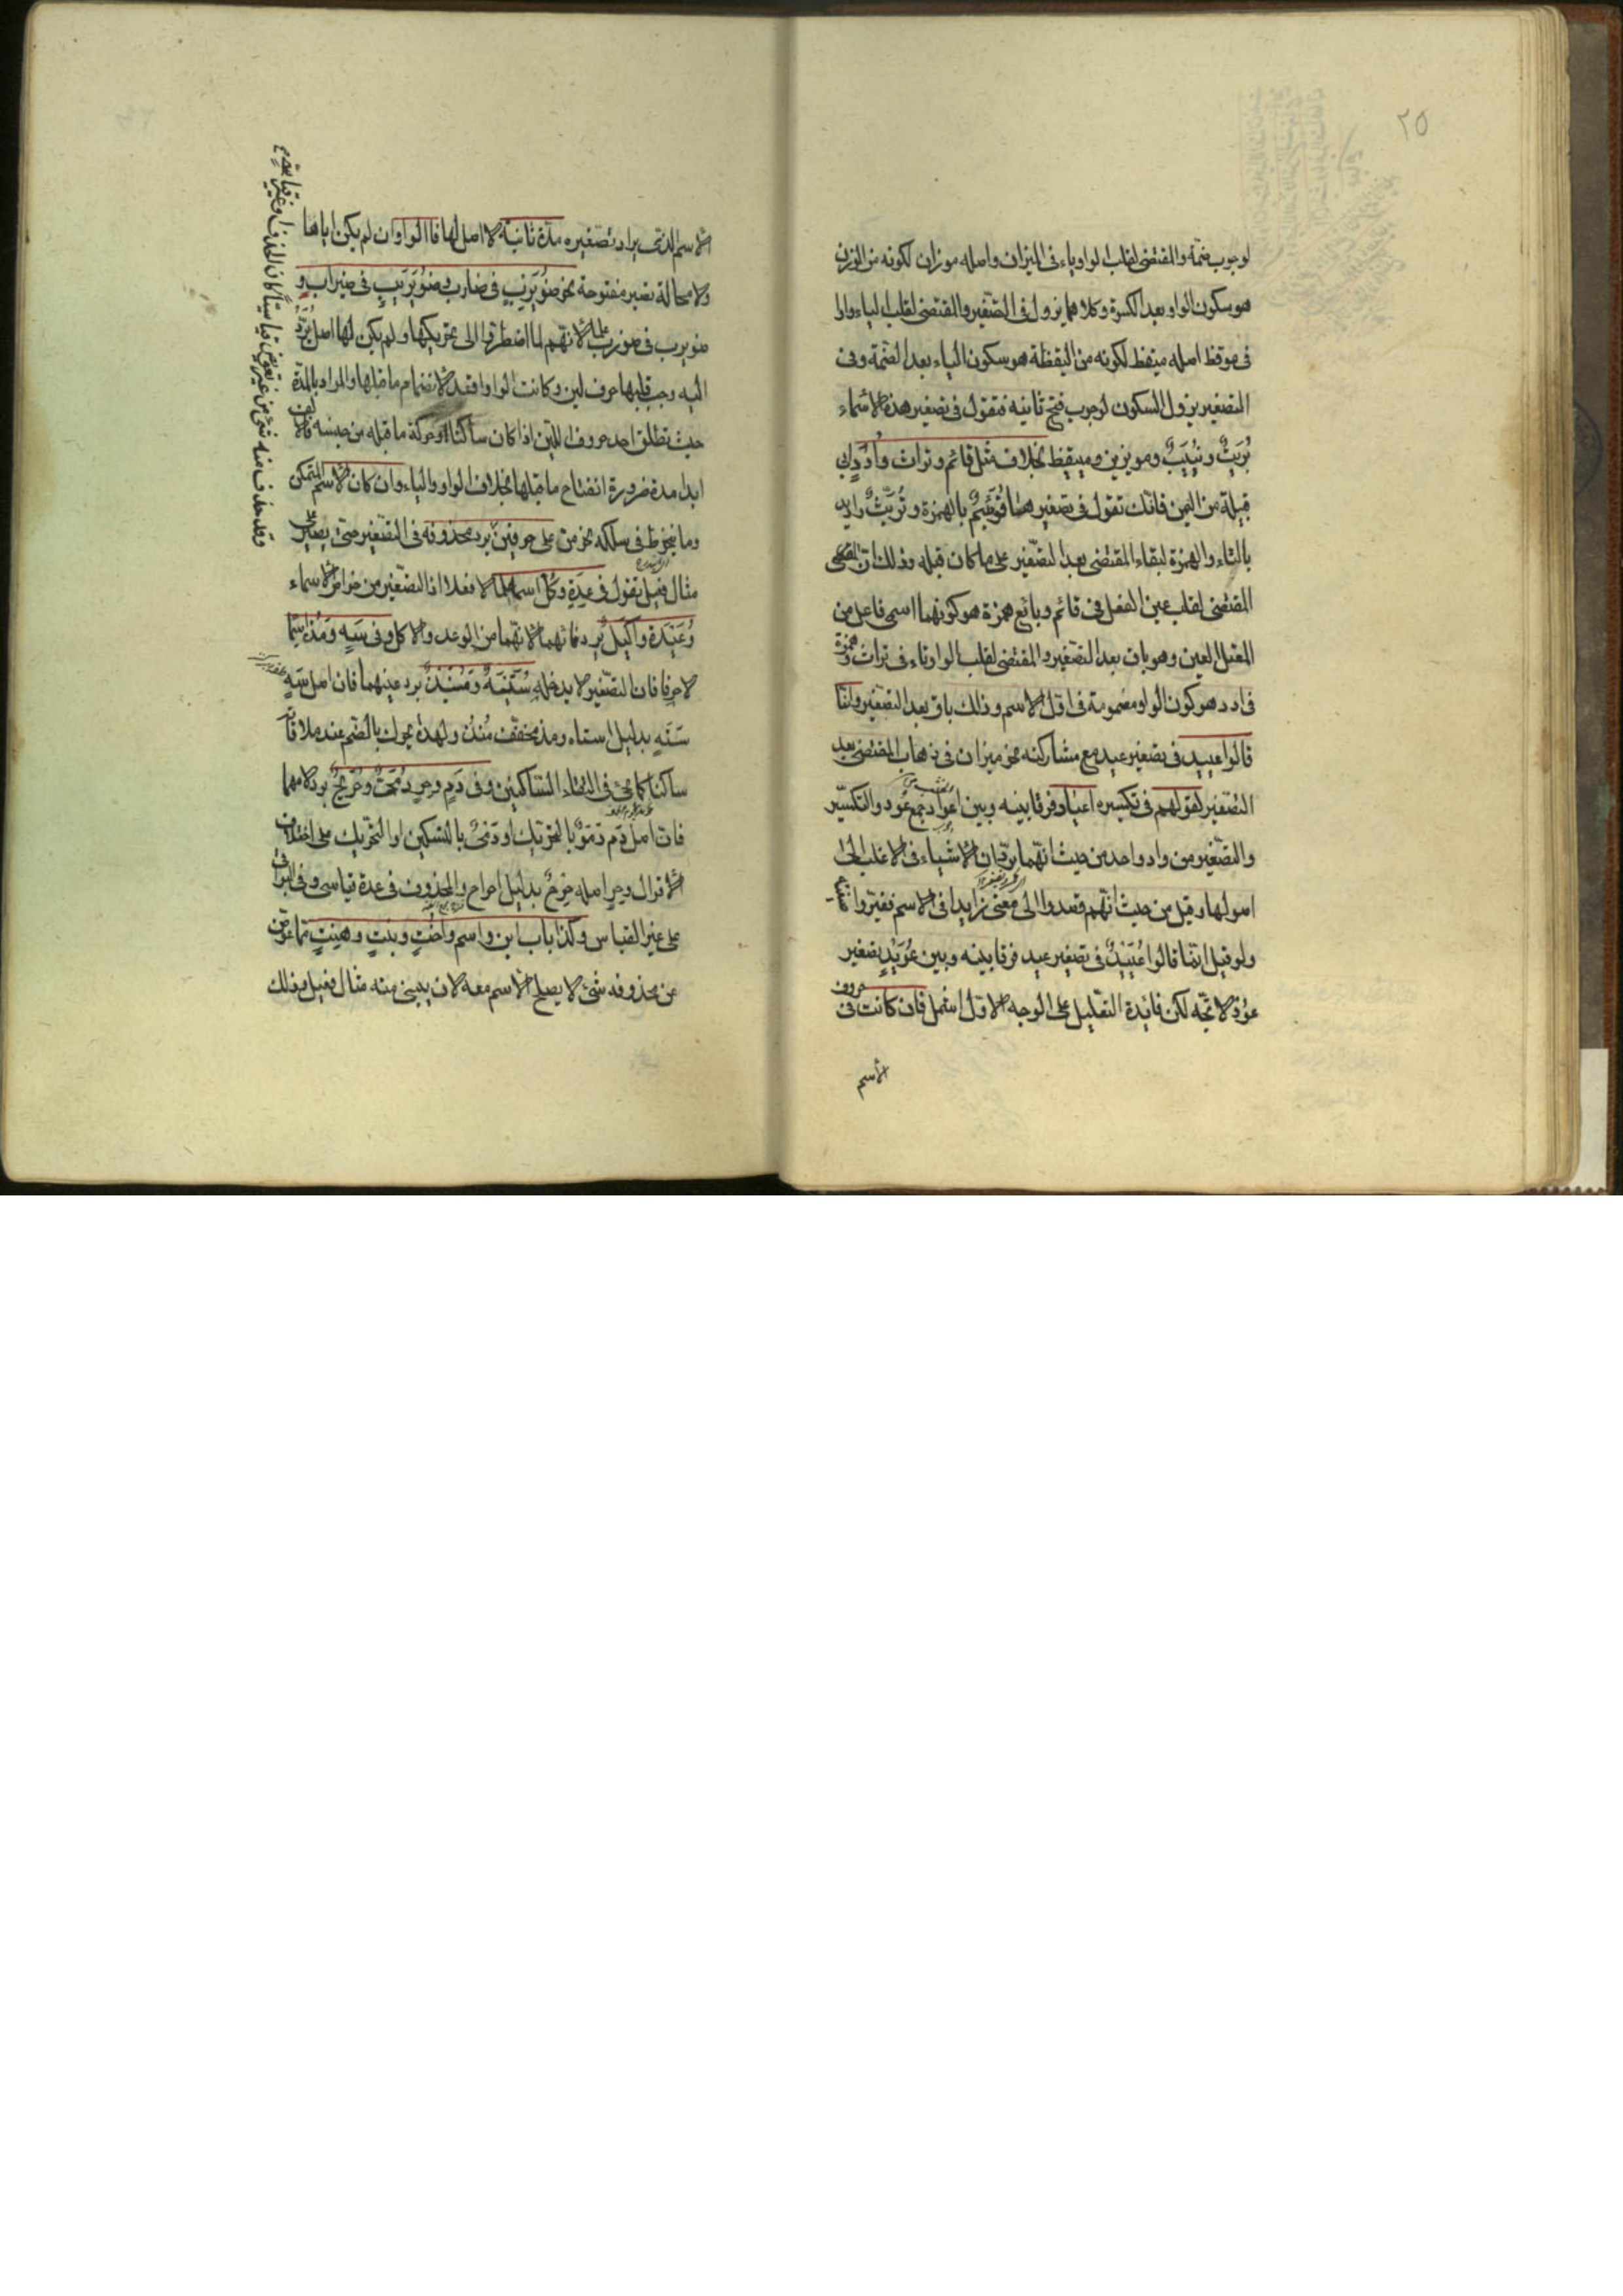 ٢٥
لوجوب ضمّه والمقتضى لقلب الواو ياء فى الميزان واصله موزان لكونه من الوزن
هو سكون الواو بعد الكسرة وكلاهما يزول فى التصغير والمقتضى لقلب الياء واوا
فى موقظ اصله ميقظ لكونه من اليقظة هو سكون الياء بعد الضمة وفى
التصغير يزول السكون لوجوب فتح ثانيه فتقول فى تصغير هذه الاسماء
بُوَيْبٌ ونُيَيْبٌ ومويزين ومييقظ بخلاف مثل قائم وتراث وأُدَد ابى
قبيلة من اليمن فانّك تقول فى تصغيرها قُوَيْئِمٌ بالهمزة وتُرَيِّثٌ وادَيد
بالتاء والهمزة لبقاء المقتضى بعد التصغير على ما كان قبله وذلك انّ
المقتضى لقلب عين الفعل فى قائم وبائع همزة هو كونهما اسمى فاعل من
المعتل العين وهو باق بعد التصغير والمقتضى لقلب الواو تاء فى تراث وهمزة
فى ادد هو كون الواو مضمومة فى اوّل الاسم وذلك باق بعد التصغير وانّما
قالوا عييد فى تصغير عيد مع مشاركته نحو ميزان فى ذهاب المقتضى بعد
التصغير لقولهم فى تكسيره اعياد فرقا بينه وبين اعواد جمع عُود والتكسير
والتصغير من واد واحد من حيث انّهما يردّان الاشياء فى الاغلب الى
اصولها وقيل من حيث انّهم قصدوا الى معنى زايد فى الاسم فغيّروا
ولو قيل انّما قالوا عُيَيْدٌ فى تصغير عيد فرقا بينه وبين عُوَيْدٍ تصغير
عُوْدٍ لاتّجه لكن فائدة التعليل على الوجه الاوّل اشمل فان كانت فى
الاسم
الاسم الذى يراد تصغيره مدّة ثانية لا اصل لها فالواو وان لم يكن اياها
ولا محالة تصير مفتوحة نحو ضُوَيْرِبٍ فى ضارب وضُوَيْرِيبٍ فى ضيراب و
ضويرب فى ضورب لانّهم لما اضطرّوا الى تحريكها ولم يكن لها اصل يردّ
اليه وجب قلبها حرف لين وكانت الواو اقعد لانضمام ما قبلها والمراد بالمدّة
حيث تطلق احد حروف اللين اذا كان ساكنا وحركة ما قبله من جنسه فالالف
ابدا مدة ضرورة انفتاح ما قبلها بخلاف الواو والياء وان كان الاسم المتمكن
وما ينخرط فى سلكه نحو من على حرفين يردّ محذوفه فى التصغير حتى يصير على
مثال فعيل تقول فى عِدَةٍ وكُل اسما لا فعلا اذ التصغير من خواص الاسماء
وُعَيْدَة واُكَيْل يردّ فائهما لانّهما من الوعد والاكل وفى سَهٍ ومُذ اسمًا
لا حرفا فان التصغير لا يدخله سُتَيْهَةٌ ومُنَيْذٌ بردّ عينهما فان اصل سَهٍ
سَتَهٍ بدليل استاه ومذ مخفّف مُنْذُ ولهذا يحرّك بالضم عند ملاقاته
ساكنا كما يجئ فى التقاء الساكنين وفى دَمٍ وحِرٍ دُمَىٌّ وحُرَيْحٌ بردّ لامهما
فانّ اصل دَم دَمَوٌ بالتحريك او دَمْىٌ بالتسكين او التحريك على اختلاف
الاقوال وحِرٍ اصله حِرْحٌ بدليل احراح والمحذوف فى عدة قياسى وفى البواقى
على غير القياس وكذا باب ابن واسم واخْتٍ وبنتٍ وهَنْتٍ ممّا عوّض
عن محذوفه شئ لا يصلح الاسم معه لان يبنى منه مثال فعيل وذلك